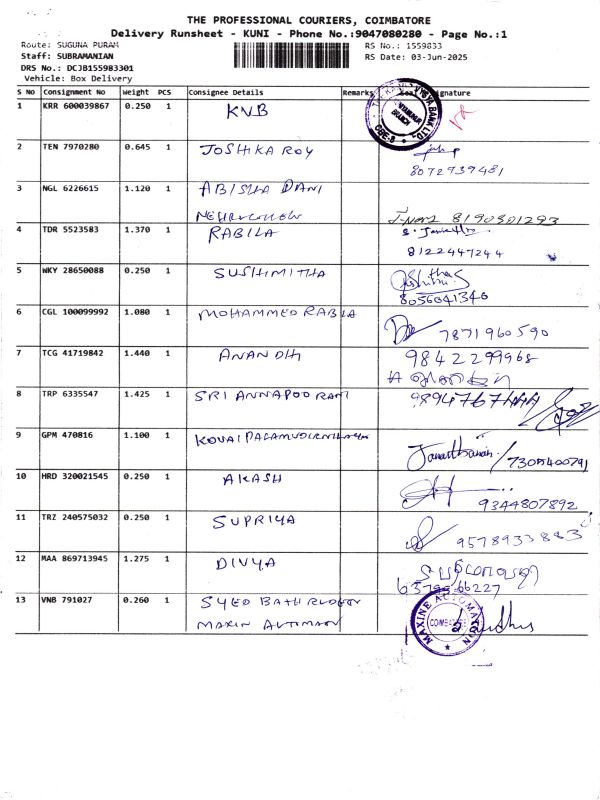 THE PROFESSIONAL COURIERS, COIMBATORE
Delivery Runsheet - KUNI - Phone No.:9047080280 - Page No.:1
Route: SUGUNA PURAM
RS No.: 1559833
Staff: SUBRAMANIAN
RS Date: 03-Jun-2025
DRS No.: DCJB155983301
Vehicle: Box Delivery
S No Consignment No Weight PCS Consignee Details Remarks
1 KRR 600039867 0.250 1 KVB
BANK LTD.
BRANCH
CBE-8
2 TEN 7970280 0.645 1 JOSHIKA ROY
8072939481
3 NGL 6226615 1.120 1 ABISHA DANI
8190301293
4 TDR 5523583 1.370 1 RABILA
8122447244
5 WKY 28650088 0.250 1 SUSHMITHA
8056041340
6 CGL 100099992 1.080 1 MOHAMMED RABLA
7871960590
7 TCG 41719842 1.440 1 ANANDH
9842299968
8 TRP 6335547 1.425 1 SRI ANNAPOORANI
9 GPM 470816 1.100 1
7305400791
10 HRD 320021545 0.250 1 AKASH
9344807892
11 TRZ 240575032 0.250 1 SUPRIYA
9578933883
12 MAA 869713945 1.275 1 DIVYA
13 VNB 791027 0.260 1 SYED
MAXINE AUTOMATION